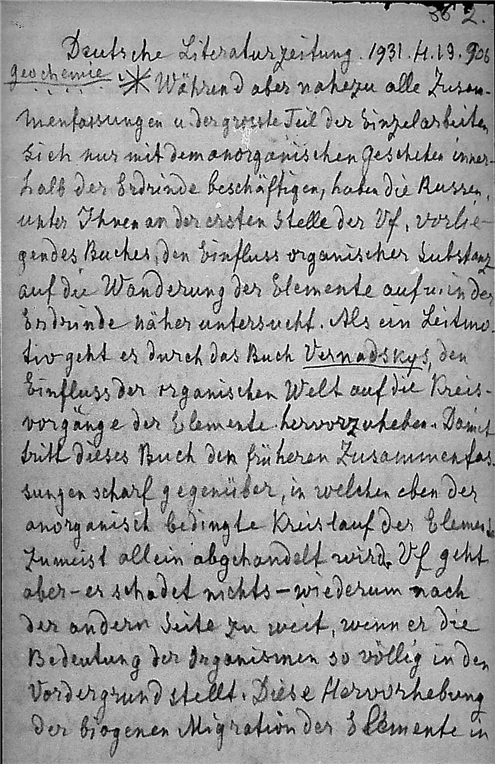 86 2.
Deutsche Literaturzeitung. 1931. H.19. 906
Geochemie. Während aber nahezu alle Zusam-
menfassungen u. der grosste Teil der Einzelarbeiten
sich nur mit dem anorganischen Geschehen inner-
halb der Erdrinde beschäftigen, haben die Russen,
unter Ihnen an der ersten Stelle der Vf. vorlie-
gendes Buches, den Einfluss organischer Substanz
auf die Wanderung der Elemente auf u. in der
Erdrinde näher untersucht. Als ein Leitmo-
tiv geht es durch das Buch Vernadskys, den
Einfluss der organischen Welt auf die Kreis-
vorgänge der Elemente hervorzuheben. Damit
tritt dieses Buch den früheren Zusammenfas
sungen scharf gegenüber, in welchen eben der
anorganisch bedingte Kreislauf der Elemente
zumeist allein abgehandelt wird. Vf geht
aber - er schadet nichts - wiederum nach
der andern Seite zu weit, wenn er die
Bedeutung der Organismen so völlig in den
Vordergrund stellt. Diese Hervorhebung
der biogenen Migration der Elemente in